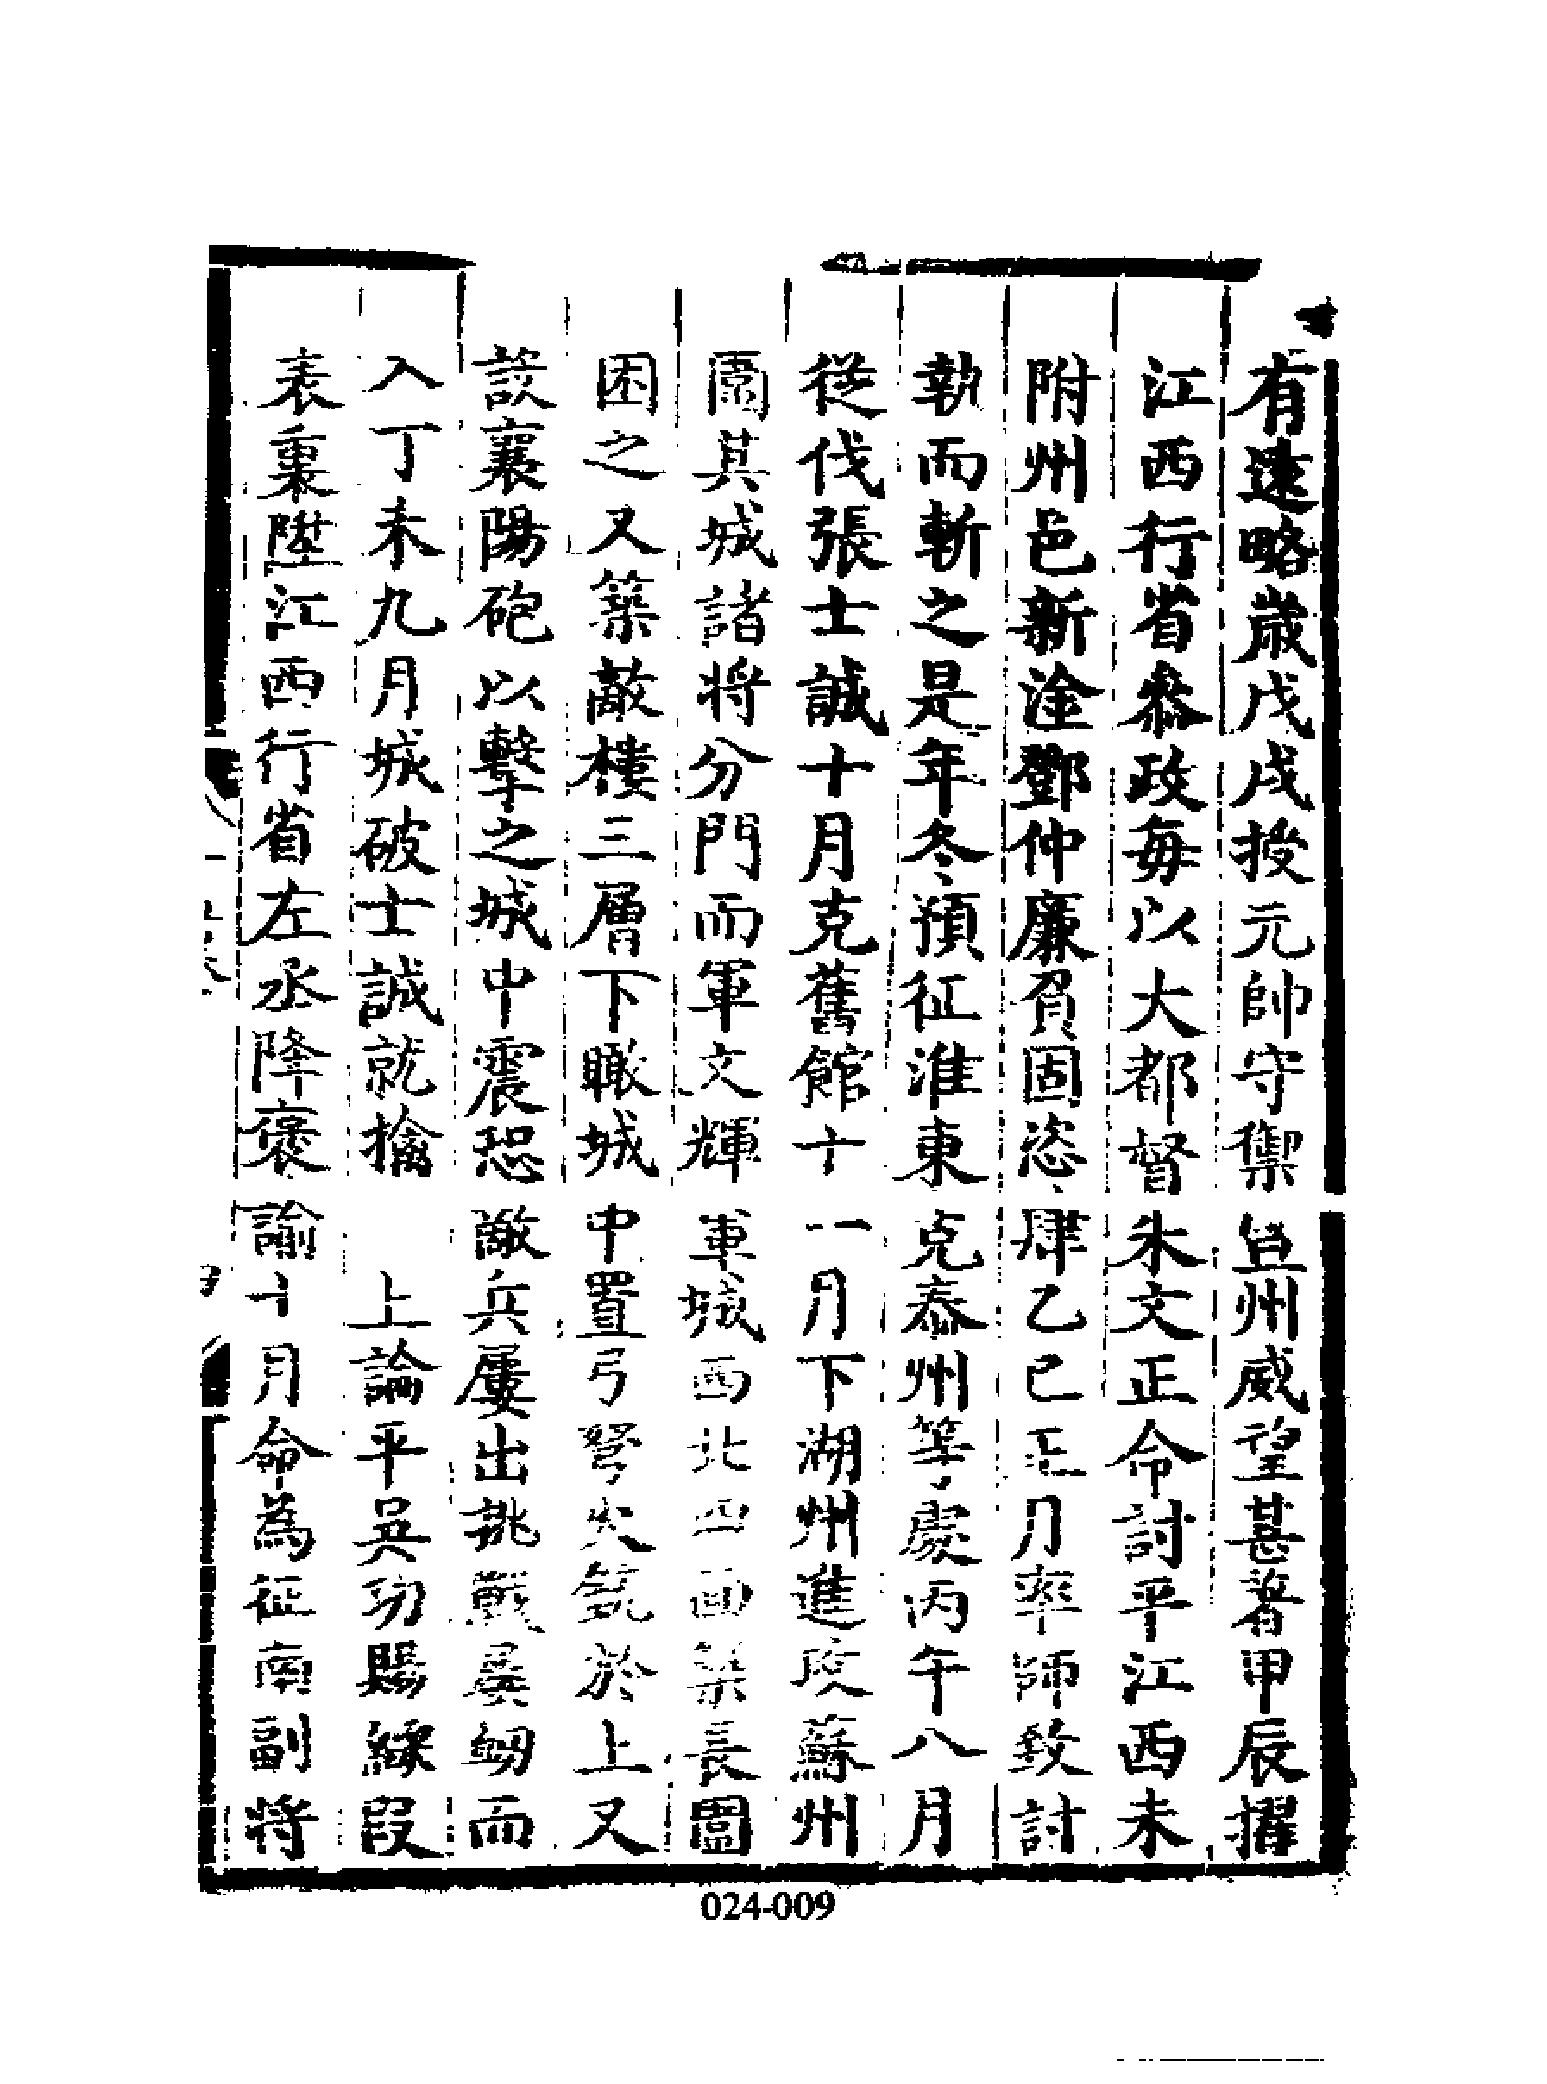 有遠略歲戊戌授元帥守禦宜州威望甚著甲辰擢
江西行省叅政每以大都督朱文正命討平江西未
附州邑新淦鄧仲廉負固恣肆乙巳正月率師致討
執而斬之是年冬預征淮東克泰州等處丙午八月
從伐張士誠十月克舊館十一月下湖州進攻蘇州
圍其城諸將分門而軍文輝軍城西北四面築長圍
困之又築敵樓三層下瞰城中置弓弩火筒於上又
設襄陽砲以擊之城中震恐敵兵屢出挑戰屢衂而
入丁未九月城破士誠就擒 上論平吳功賜綵段
表裏陞江西行省左丞降褒諭十月命為征南副將
024-009